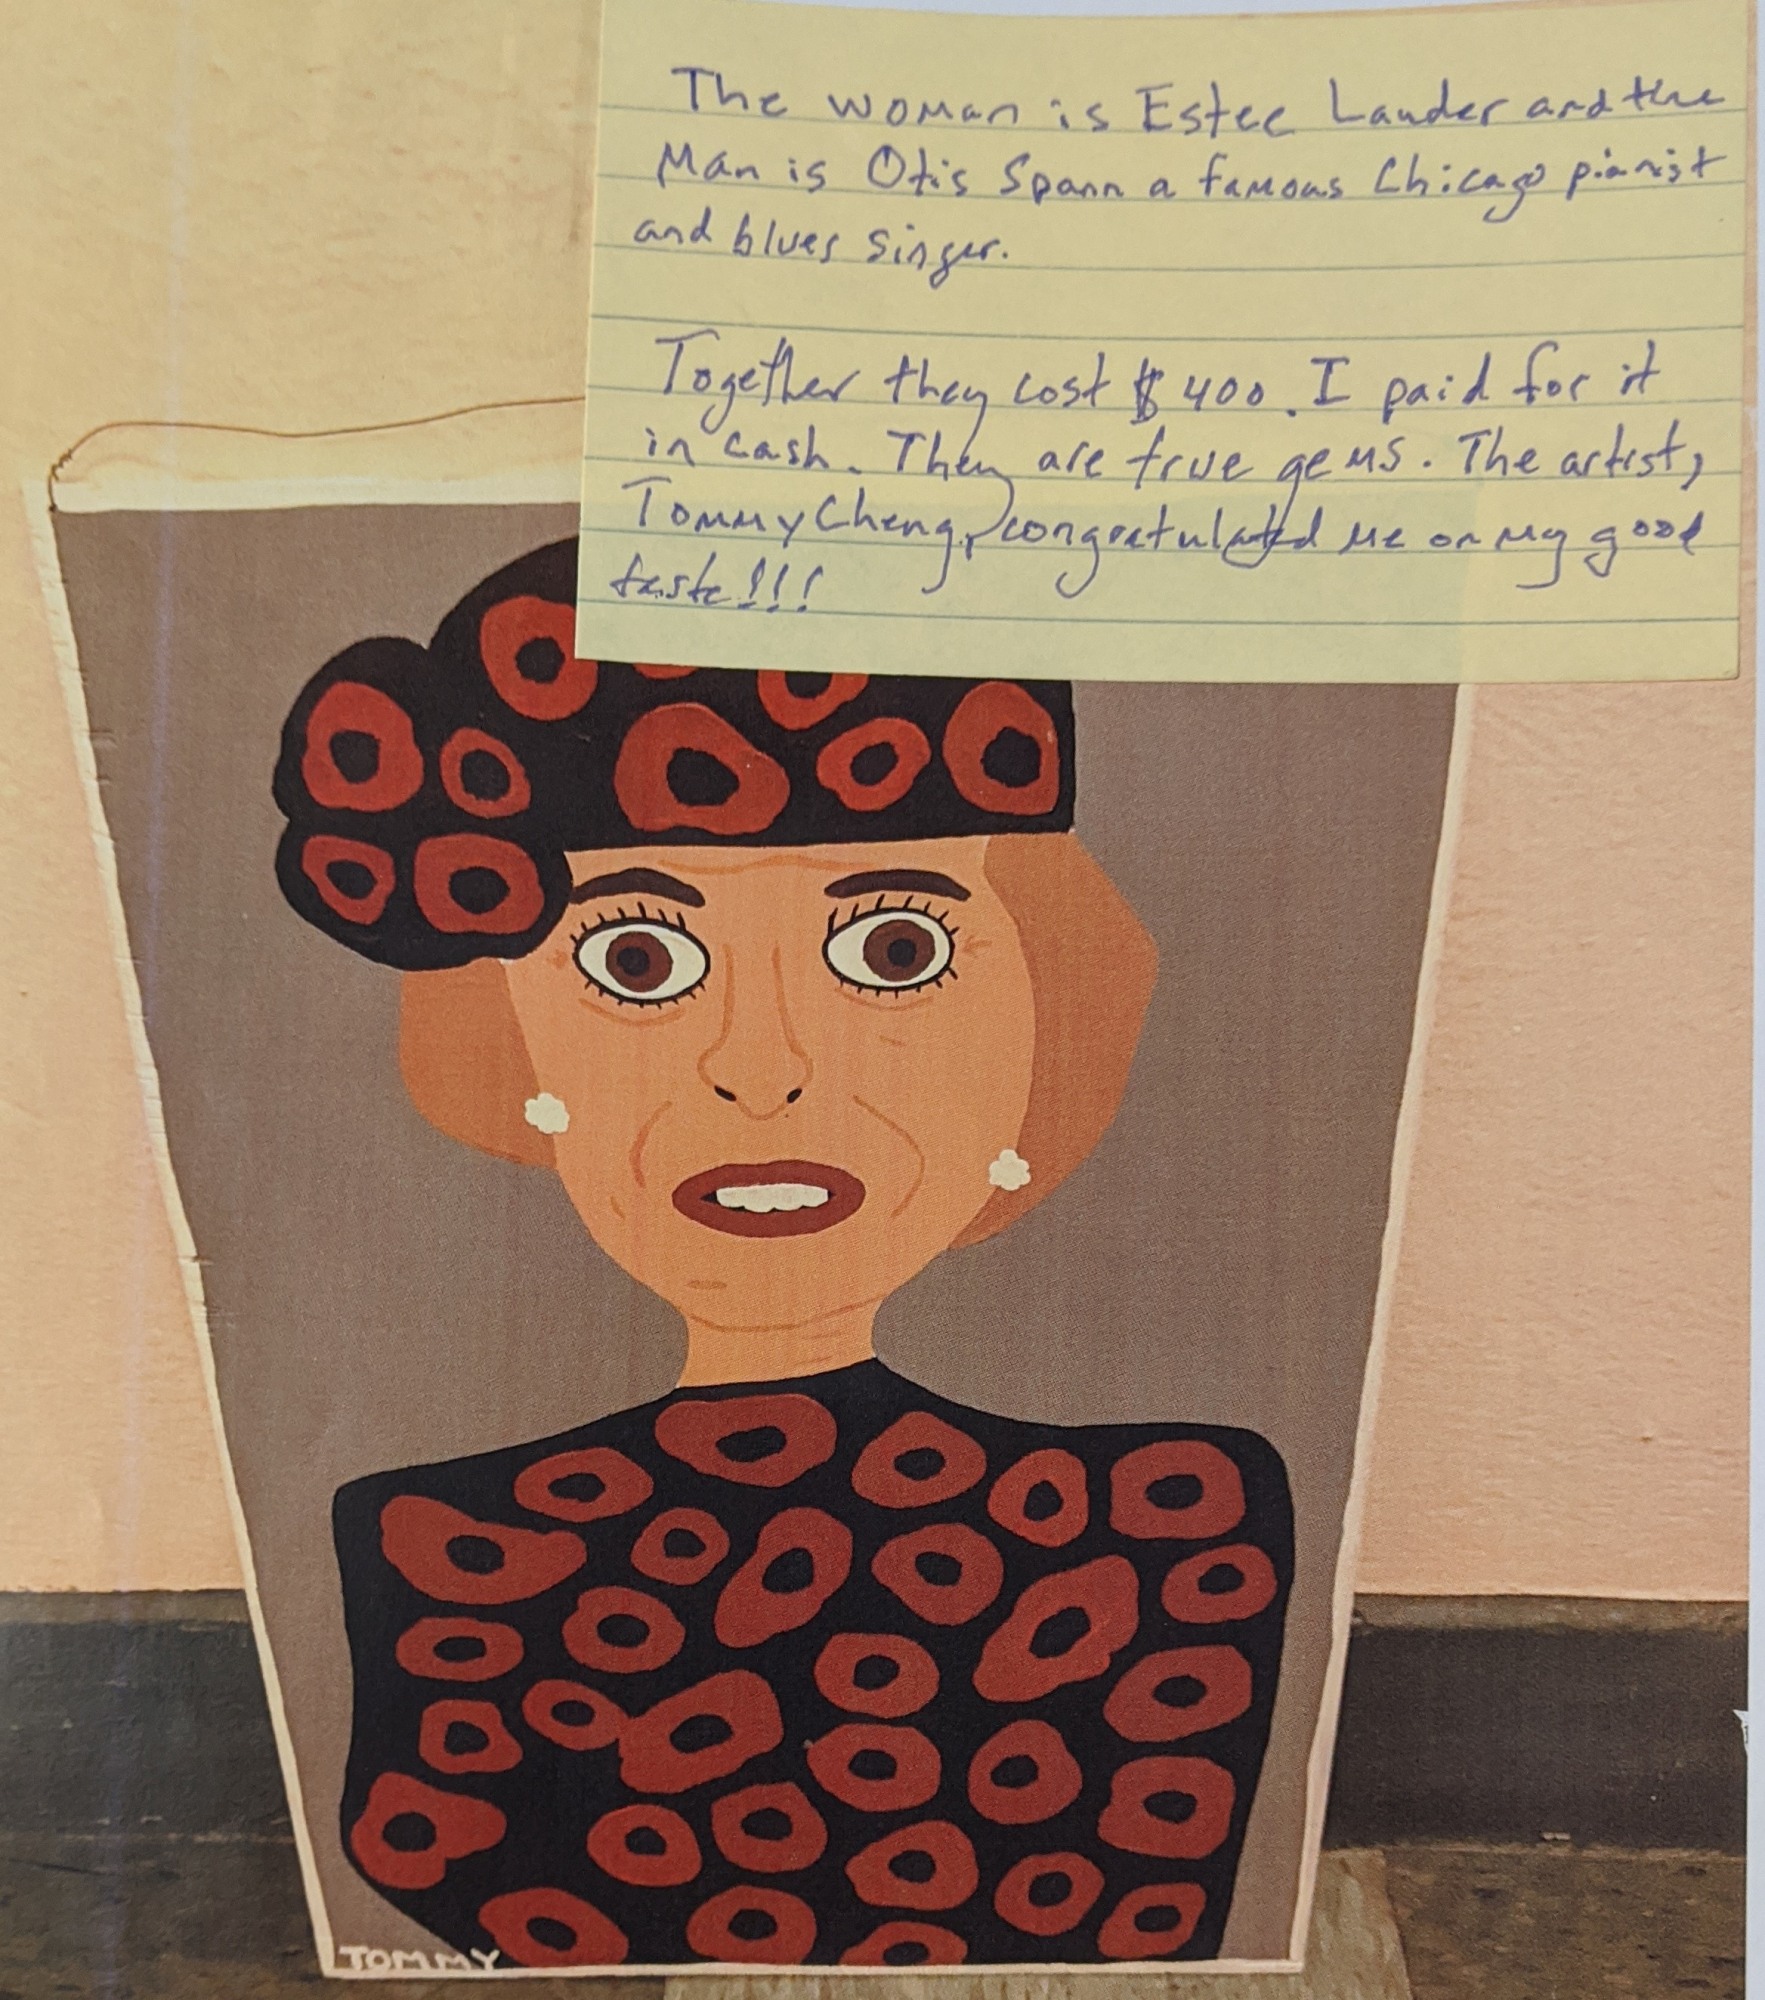 The woman is Estee Lauder and the
Man is Otis Spann a famous Chicago pianist
and blues singer.
Together they cost $400. I paid for it
in cash. They are true gems. The artist,
Tommy Cheng, congratulated me on my good
taste!!!
TOMMY